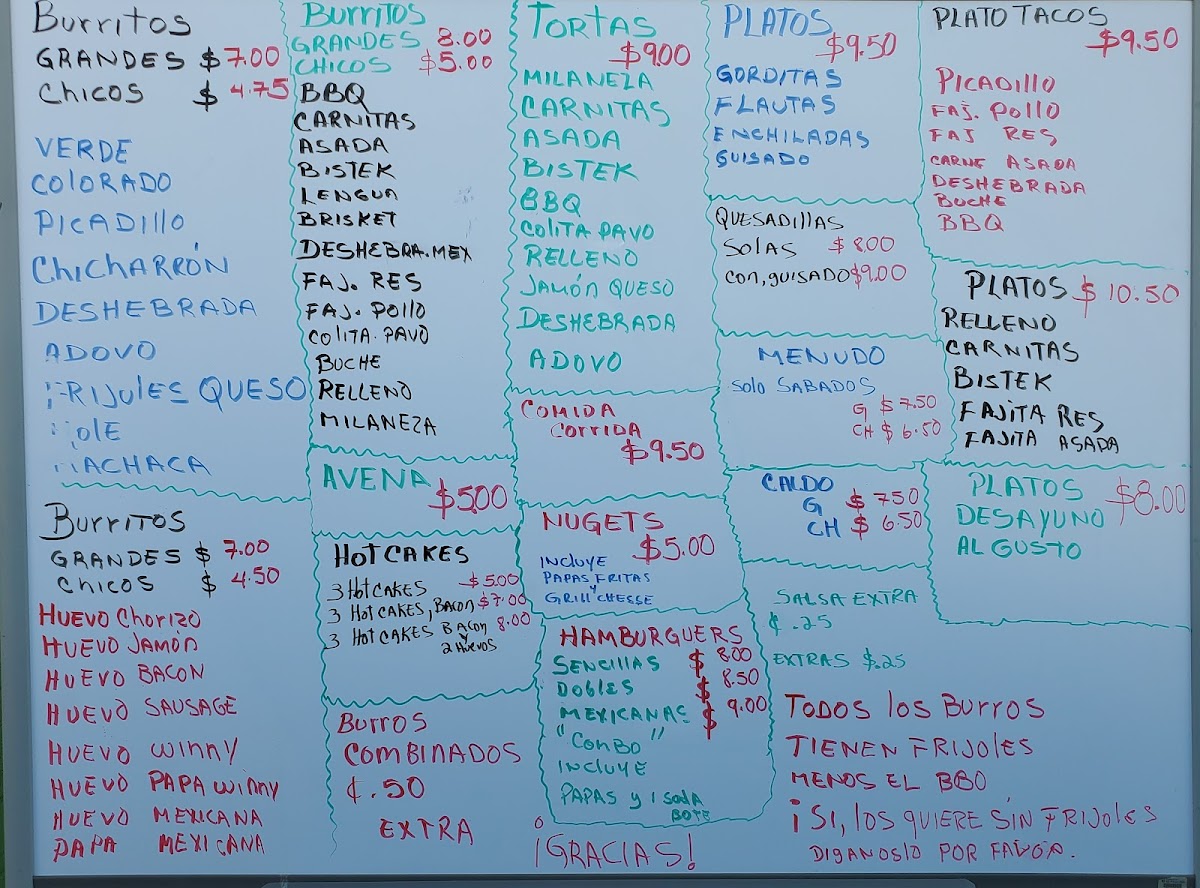 Burritos
GRANDES $7.00
Chicos $4.75
VERDE
COLORADO
PICADILLO
ChiCHARRÓN
DESHEBRADA
ADOVO
FRIJULES QUESO
OLE
MACHACA
Burritos
GRANDES $7.00
Chicos $4.50
HUEVO Chorizo
HUEVO JAMÓN
HUEVO BACON
HUEVO SAUSAGE
HUEVO WINNY
HUEVO PAPA WINNY
HUEVO MEXICANA
PAPA MEXICANA
Burritos
GRANDES 8.00
CHICOS $5.00
BBQ
CARNITAS
ASADA
BISTEK
LENGUA
BRISKET
DESHEBRA.MEX
FAJ. RES
FAJ. POLLO
COLITA.PAVO
BUCHE
RELLENO
MILANEZA
AVENA $5.00
HOT CAKES
3 HOT CAKES $5.00
3 HOT CAKES, BACON $7.00
3 HOT CAKES BACON 8.00
y
2 HUEVOS
BURROS
COMBINADOS
¢.50
EXTRA
TORTAS
$9.00
MILANEZA
CARNITAS
ASADA
BISTEK
BBQ
COLITA PAVO
RELLENO
JAMÓN QUESO
DESHEBRADA
ADOVO
COMIDA
CORRIDA
$9.50
NUGETS
$5.00
INCLUYE
PAPAS FRITAS
y
GRILL CHESSE
HAMBURGUERS
SENCILLAS $8.00
DOBLES $8.50
MEXICANAS $9.00
"CONBO"
INCLUYE
PAPAS y 1 SODA
BOTE
¡GRACIAS!
PLATOS
$9.50
GORDITAS
FLAUTAS
ENCHILADAS
GUISADO
QUESADILLAS
SOLAS $8.00
CON, GUISADO $9.00
MENUDO
SOLO SABADOS
G $7.50
CH $6.50
CALDO
G $7.50
CH $6.50
SALSA EXTRA
¢.25
EXTRAS $.25
PLATO TACOS
$9.50
PICADILLO
FAJ. POLLO
FAJ RES
CARNE ASADA
DESHEBRADA
BUCHE
BBQ
PLATOS $10.50
RELLENO
CARNITAS
BISTEK
FAJITA RES
FAJITA ASADA
PLATOS $8.00
DESAYUNO
AL GUSTO
TODOS los BURROS
TIENEN FRIJOLES
MENOS EL BBQ
¡SI, LOS QUIERE SIN FRIJOLES
DIGANOSLO POR FAVOR.